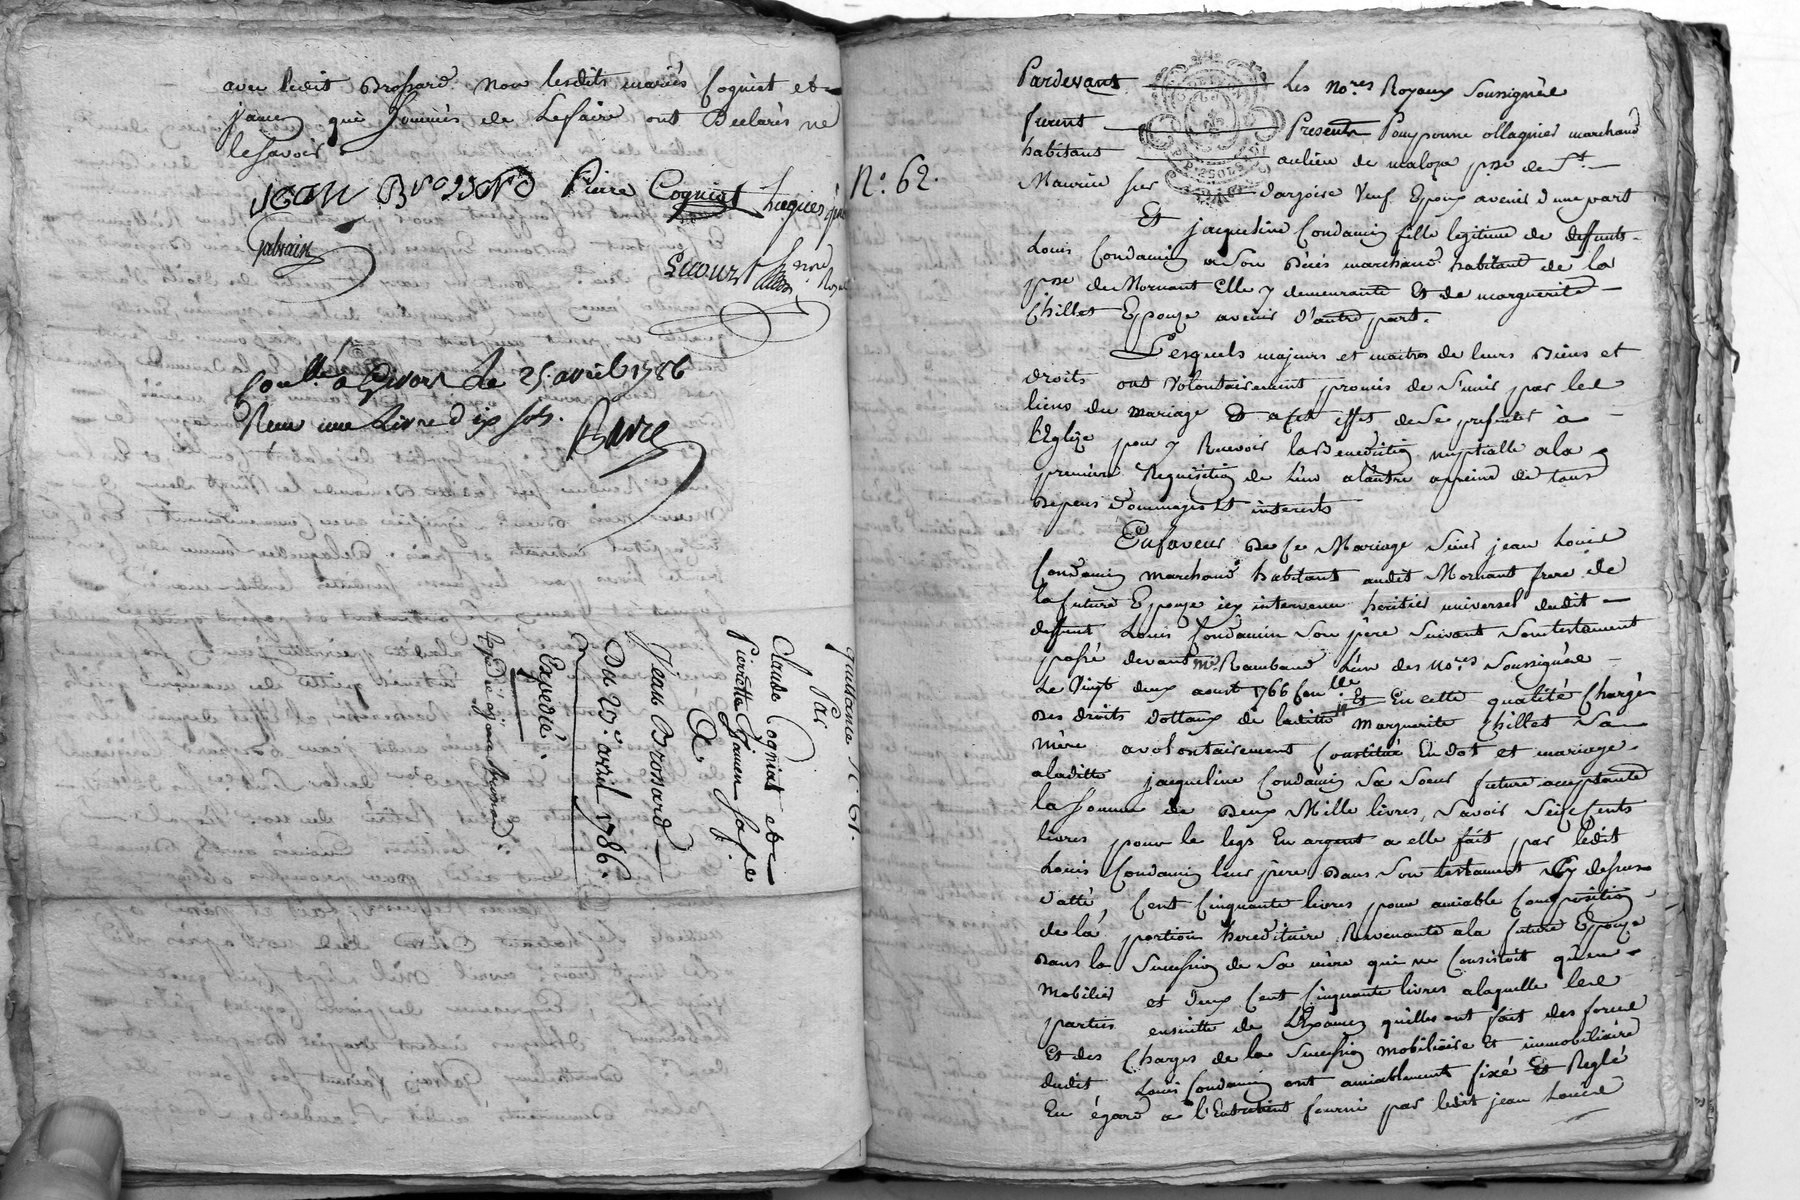 avec ledit Brossard. Non lesdits mariés Cogniet et
jamen qui sommés de Lefaire ont Declarés ne
le savoir.
JEAN Brossard Pierre Cogniet
Galvain
Licourt nore Royal
Coullé a Givors Le 25. avril 1786
Reçu une Livre Dix sols.
Bavre
Quittance N. 61.
Par
Claude Cogniat et
Pierrette Jamen Sa fe
A
Jean Brossard
Du 20e. avril 1786.
Expedié.
N°. 62.
Pardevant les No.res Royaux Soussignés
furent Presents Pomponne ollagnier marchand
habitant au lieu de maloza psse de St.
Maurice sur dargoire Veuf Epoux avenir d'une part
Et jacqueline Condamin fille legitime de deffunts
Louis Condamin a son deces marchand habitant de la
psse de Mornant Elle y demeurante Et de marguerite
Chillet Epouze avenir d'autre part.
Lesquels majeurs et maitres de leurs Biens et
droits ont volontairement promis de s'unir par les
liens du mariage Et a cet effet de Se presenter à
l'Eglize pour y Recevoir la Benediction nuptialle a la
premiere Requisition de l'un a l'autre a peine de tous
Depens Dommages Et interets
En faveur De Ce Mariage Sieur jean Louis
Condamin marchand habitant audit Mornant frere de
la future Epouze icy intervenu heritier universel dudit
deffunt Louis Condamin Son père Suivant Son testament
passé devant me. Rambaud L'un des No.res Soussignés
Le Vingt deux aoust 1766 Coullé Et En cette qualité Chargé
Des droits dottaux de laditte Marguerite Chillet Sa
Mère a volontairement Constitué En dot et mariage
a laditte jacqueline Condamin Sa Soeur future acceptante
la Somme de Deux Mille livres, Savoir Seize Cents
livres pour le legs En argent a elle fait par ledit
Louis Condamin leur père Dans Son testament Cy dessus
datté Cent Cinquante livres pour amiable Composition
de la portion hereditaire Revenante a la future Epouze
Dans la Succession de Sa mère qui ne Consistoit qu'en
Mobilier et deux Cent Cinquante livres a laquelle les
parties ensuitte de L'Examen qu'elles ont fait des forces
Et des Charges de la Succession mobiliaire Et immobiliaire
dudit Louis Condamin ont amiablement fixé Et Reglé
En égard a l'Entretient fourni par ledit jean Louis